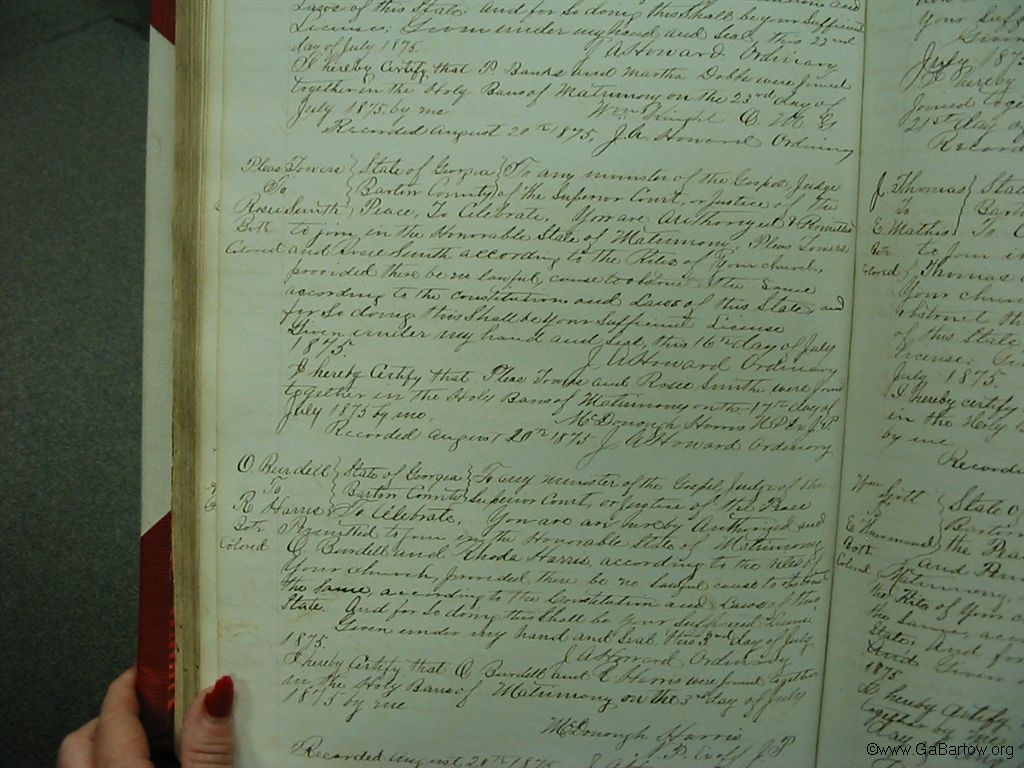 Laws of this State; And for So doing this Shall be your Sufficient
License; Given under my hand and Seal this 22nd
day of July 1875. J A Howard Ordinary
I hereby Certify that P Banks and Martha Dobbs were Joined
together in the Holy Bans of Matrimony on the 23rd day of
July 1875 by me Wm
Recorded August 20th 1875, J. A. Howard Ordinary
Pleas Towers } State of Georgia } To any minister of the Gospel, Judge
To } Bartow County } of the Superior Court, or Justice of the
Rosie Smith } Peace, To Celebrate, You are Authorized & Permitted
Both to join in the Honorable State of Matrimony, Pleas Towers
Colored and Rosie Smith according to the Rites of Your church,
provided there be no lawful cause to obstruct the Same
according to the Constitution and Laws of this State, and
for So doing this Shall be Your Sufficient License
Given under my hand and Seal, this 16th day of July
1875. J A Howard Ordinary
I hereby Certify that Pleas Towers and Rosie Smith were
together in the Holy Bans of Matrimony on the 17th day of
July 1875 by me, McDonough Harris
Recorded August 20th 1875 J A Howard Ordinary
O. Burdell } State of Georgia } To any minister of the Gospel, Judge of the
To } Bartow County } Superior Court, or Justice of the Peace
R. Harris } To Celebrate, You are hereby Authorized and
Both Permitted to join in the Honorable State of Matrimony
Colored O. Burdell and Rhoda Harris, according to the Rites of
Your church, provided there be no lawful cause to obstruct
the Same, according to the Constitution and Laws of this
State. And for So doing this Shall be Your Sufficient License
Given under my hand and Seal this day of July
1875. J A Howard Ordinary
I hereby Certify that O Burdell and R Harris were joined together
in the Holy Bans of Matrimony on the 3rd day of July
1875 by me
McDonough Harris
Recorded August 20th 1875
July 1875
I hereby
joined toge
21st day o
Record
J. Thomas } Stat
To } Bart
E. Mathis } To C
Both to join i
Colored Thomas
Your chur
obstruct th
of this State
License;
July 1875.
I hereby certify
in the Holy
by me
Recorde
State o
To } Bartow
the Pea
Both and Per
Colored Matrimony
the Rites of Your c
the Same, acco
State, And fo
Given
1875
I hereby certify
day
©www.GaBartow.org